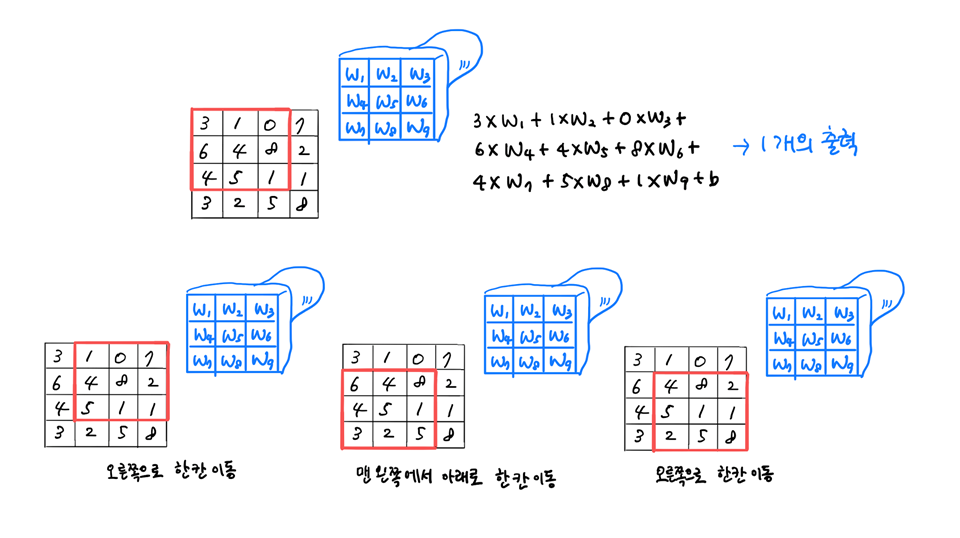 W₁ W₂ W₃
W₄ W₅ W₆
W₇ W₈ W₉
3 1 0 7
6 4 8 2
4 5 1 1
3 2 5 8
3×W₁ + 1×W₂ + 0×W₃ +
6×W₄ + 4×W₅ + 8×W₆ +
4×W₇ + 5×W₈ + 1×W₉ + b
→ 1개의 출력
W₁ W₂ W₃
W₄ W₅ W₆
W₇ W₈ W₉
3 1 0 7
6 4 8 2
4 5 1 1
3 2 5 8
오른쪽으로 한칸 이동
W₁ W₂ W₃
W₄ W₅ W₆
W₇ W₈ W₉
3 1 0 7
6 4 8 2
4 5 1 1
3 2 5 8
맨 왼쪽에서 아래로 한칸 이동
W₁ W₂ W₃
W₄ W₅ W₆
W₇ W₈ W₉
3 1 0 7
6 4 8 2
4 5 1 1
3 2 5 8
오른쪽으로 한칸 이동